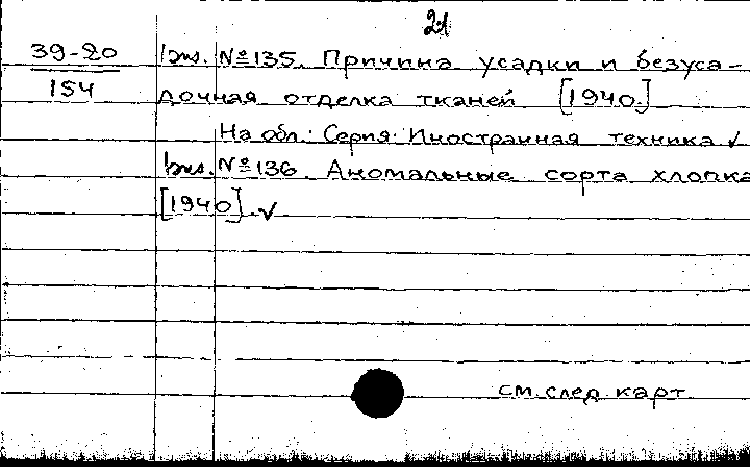 21
39-20 Вып. №135. Причина усадки и безуса-
154 дочная отделка тканей [1940.]
На обл.: Серия: Иностранная техника ✓
Вып. №136. Аномальные сорта хлопка
[1940]. ✓
см. след. карт